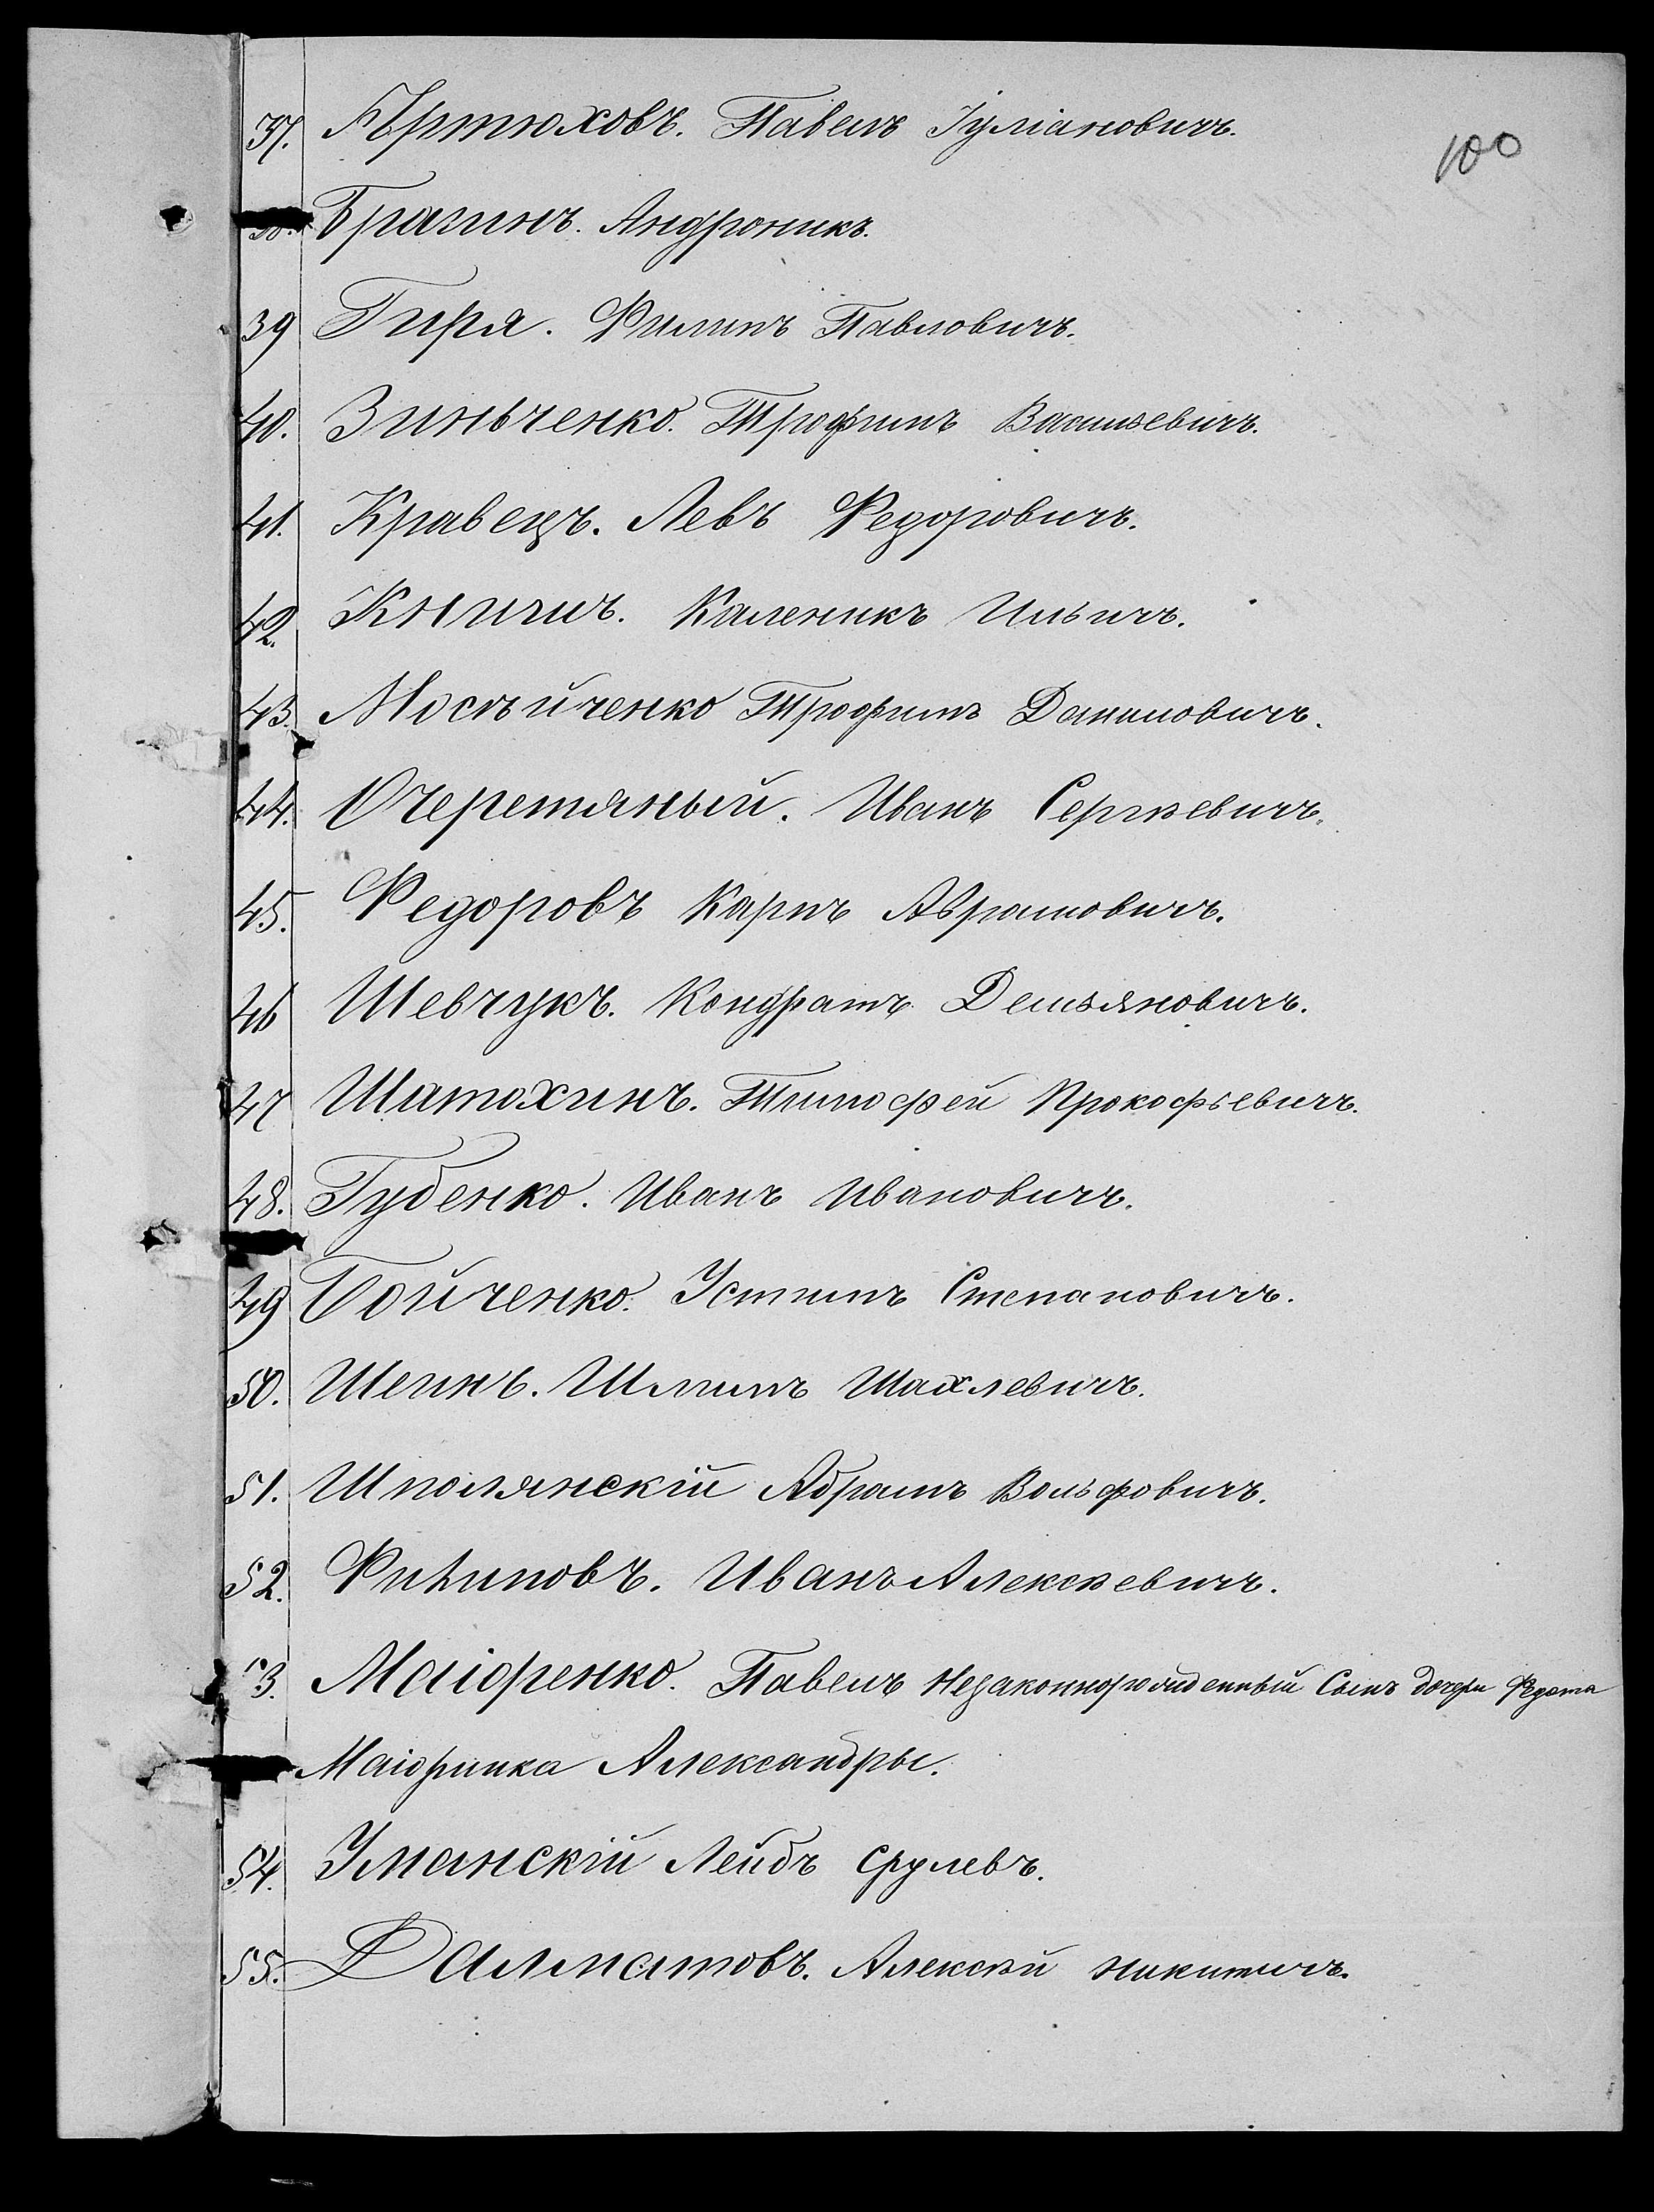 100
37. Артюховъ. Павелъ Іуліановичъ.
38. Брагинъ. Андроникъ.
39 Гиря. Филипъ Павловичъ.
40. Зинвченко. Трофимъ Васильевичъ.
41. Кравецъ. Левъ Федоровичъ.
42. Книгичъ. Каленикъ Ильичъ.
43. Мосѣйченко Трофимъ Даниловичъ.
44. Очеретяный. Иванъ Сергѣевичъ.
45. Федоровъ Карпъ Аврамовичъ.
46 Шевчукъ. Кондратъ Демьяновичъ.
47 Шатохинъ. Тимофей Прокофьевичъ.
48. Губенко. Иванъ Ивановичъ.
49 Бойченко. Устимъ Степановичъ.
50. Шеинъ. Шлимъ Шахлевичъ.
51. Шполянскій Абрамъ Вольфовичъ.
52. Филиповъ. Иванъ Алексѣевичъ.
53. Маіоренко. Павелъ Незаконнорожденный Сынъ дочери Федота
Маіоринка Александры.
54. Уманскій Лейбъ Срулевъ.
55. Далматовъ. Алексѣй Никитичъ.